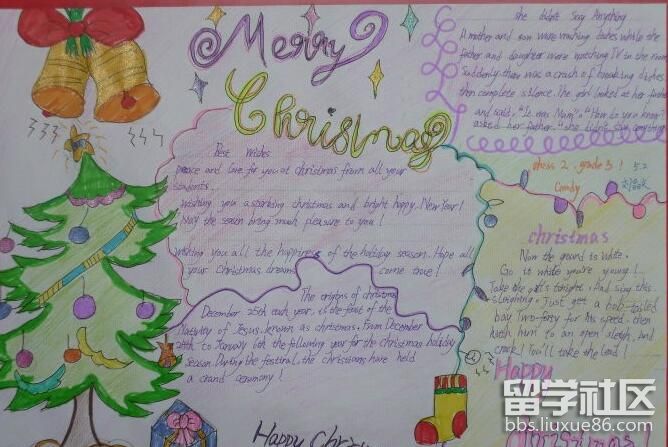 Merry
Christmas
she didn't Say Anything
A mother and son were washing dishes while the
father and daughter were watching TV in the room
Suddenly there was a crash of breaking dishes
then complete silence. The girl looked at her father
and said, "It was Mum." "How do you know?"
asked her father. "She didn't say anything
class 2, grade 3! 5.2
Candy
Best Wishes
peace and love for you at christmas from all your
students.
Wishing you a sparking christmas and bright happy New Year!
May the season bring much pleasure to you!
wishing you all the happiness of the holiday season. Hope all
your Christmas dreams come true!
The origins of christmas
December 25th each year, is the feast of the
Nativity of Jesus, known as christmas. From December
24th to January 6th the following year for the christmas holiday
season. During the festival, the christians have held
a grand ceremony!
christmas
Now the ground is white.
Go it while you're young!
Take the girls tonight. And sing this
sleighing. Just get a bob-tailed
bay Two-forty for his speed then
hitch him to an open sleigh, and
crack! You'll take the lead!
Happy
Happy Christ
留学社区
bbs.liuxue86.com